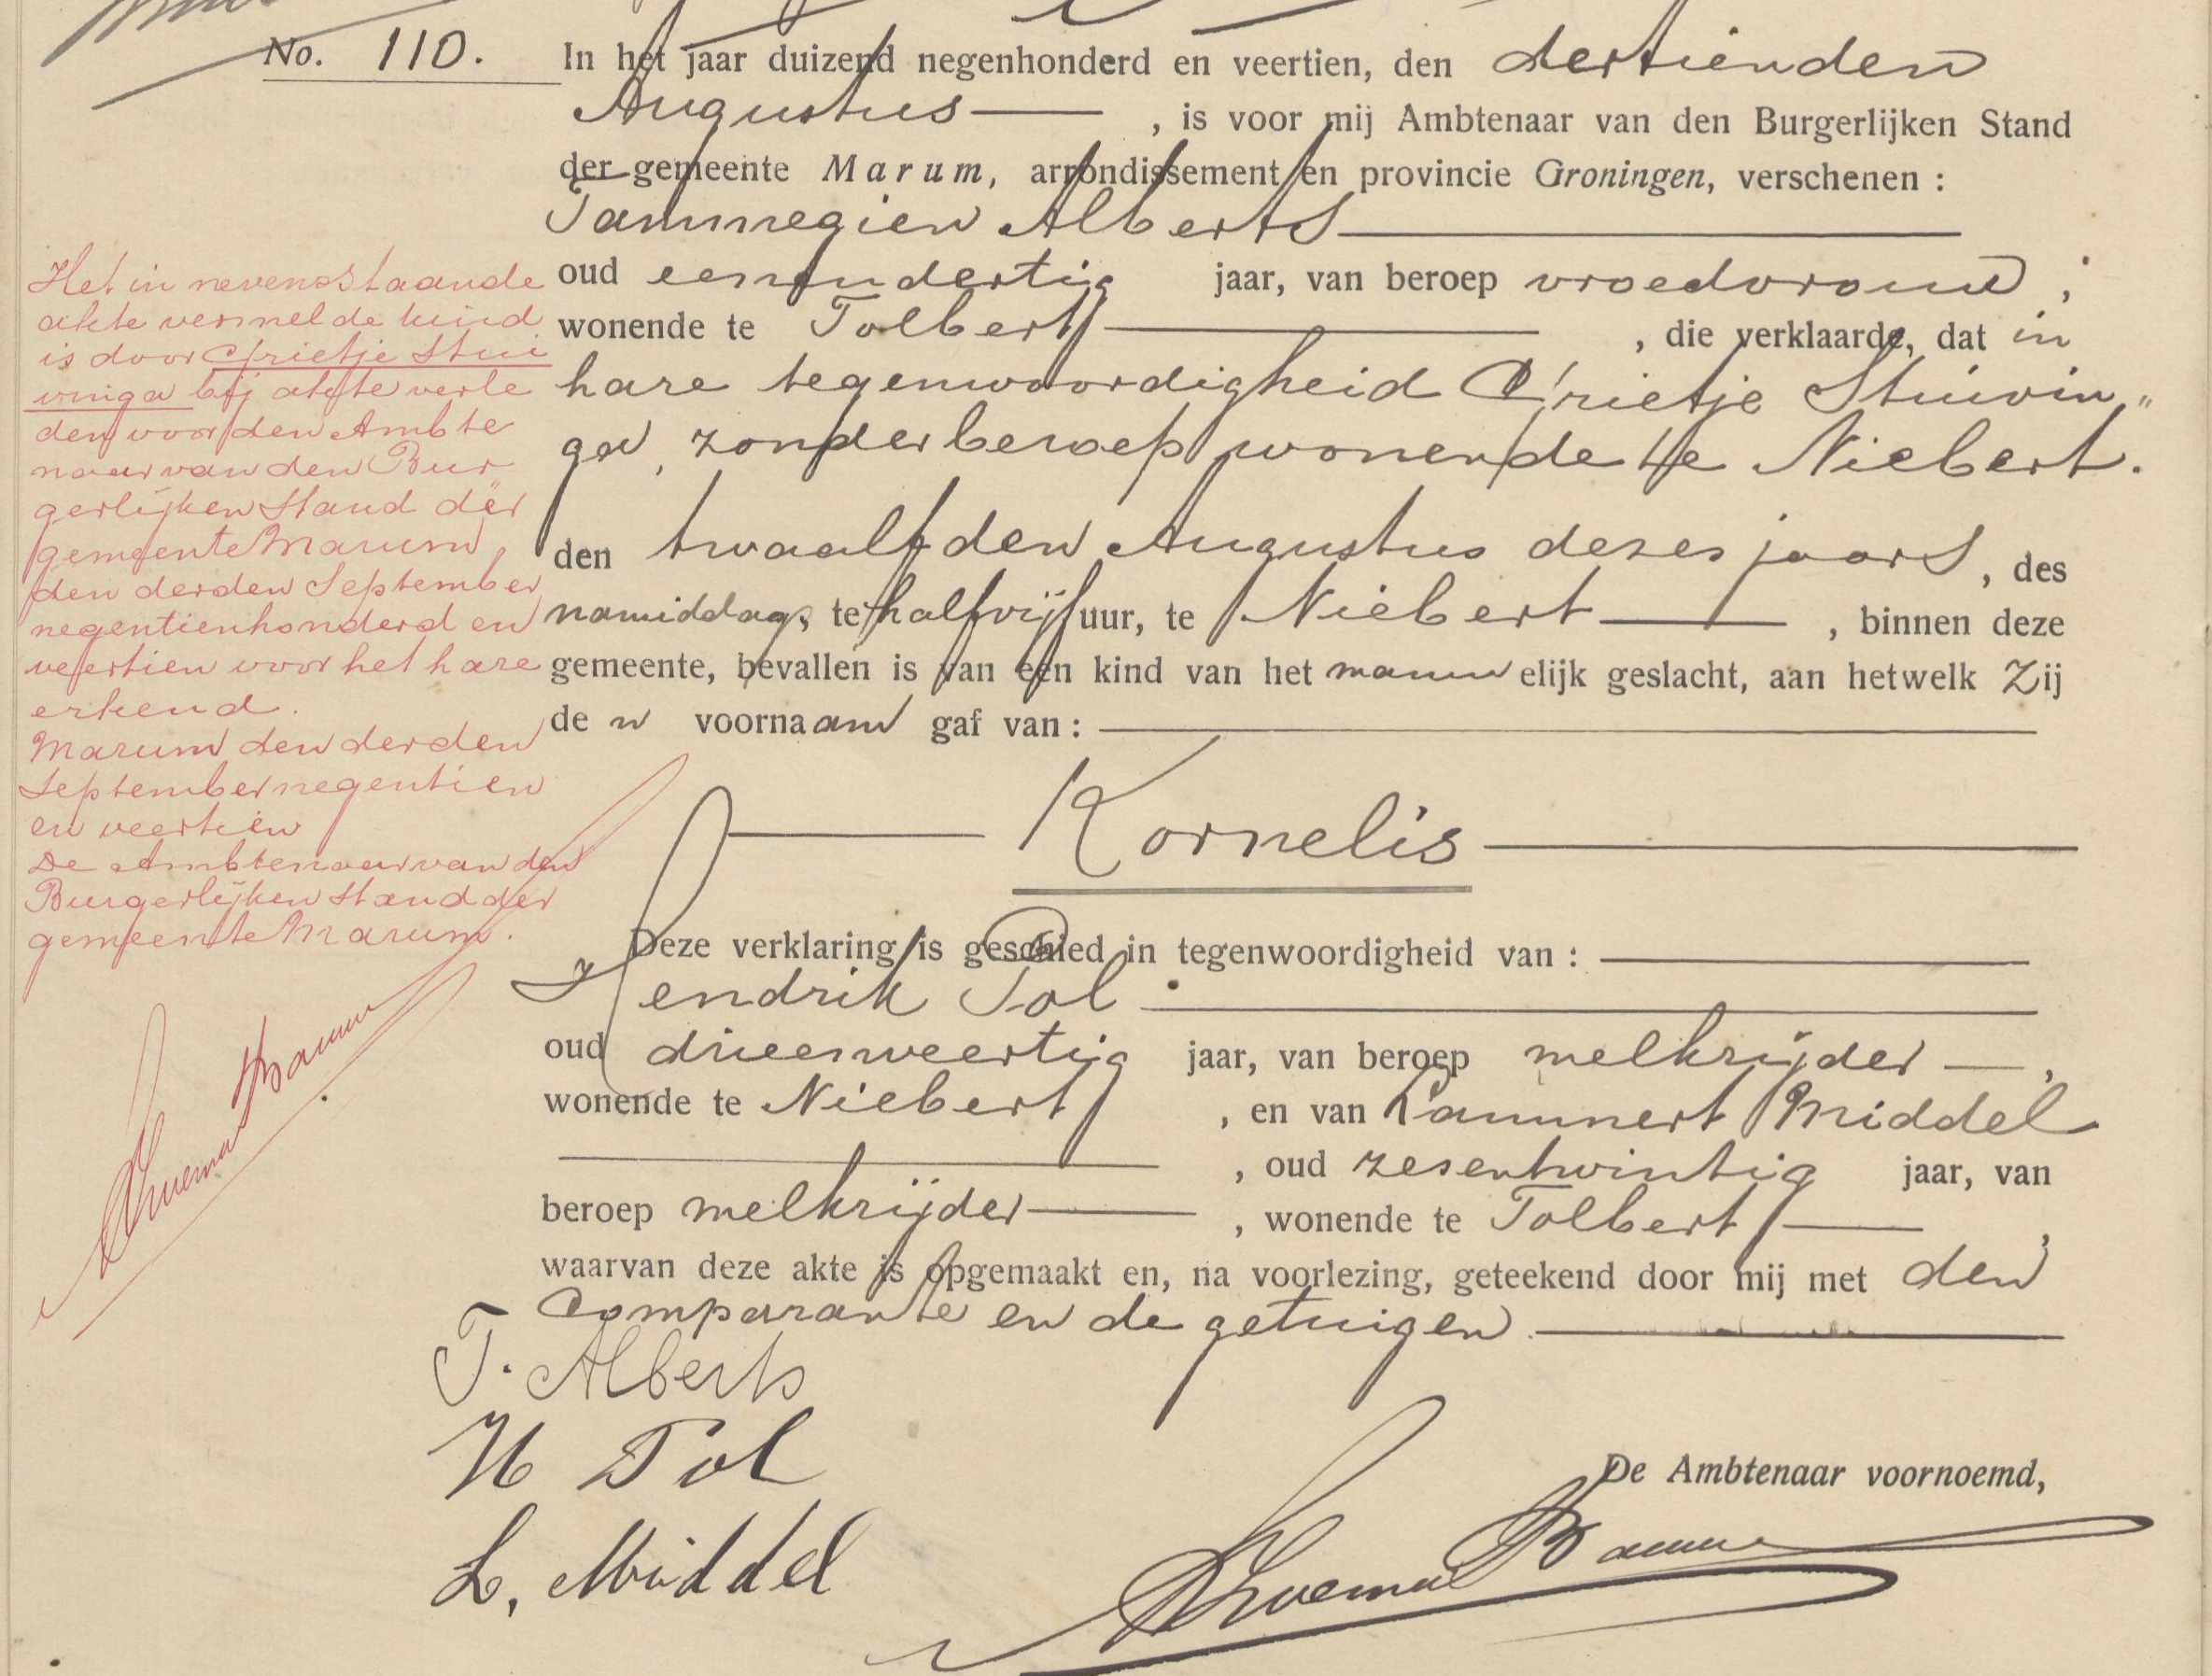 No. 110.
In het jaar duizend negenhonderd en veertien, den dertienden
Augustus , is voor mij Ambtenaar van den Burgerlijken Stand
der gemeente Marum, arrondissement en provincie Groningen, verschenen :
Tammegien Alberts
oud eenendertig jaar, van beroep vroedvrouw ,
wonende te Tolbert , die verklaarde, dat in
hare tegenwoordigheid Grietje Stuivin„
ga, zonder beroep wonende te Niebert.
den twaalfden Augustus dezes jaars , des
namiddags te half vijf uur, te Niebert , binnen deze
gemeente, bevallen is van een kind van het mannelijk geslacht, aan hetwelk Zij
den voornaam gaf van :
Kornelis
Deze verklaring is geschied in tegenwoordigheid van :
Hendrik Tol
oud drieenveertig jaar, van beroep melkrijder ,
wonende te Niebert , en van Lammert Middel
, oud zesentwintig jaar, van
beroep melkrijder , wonende te Tolbert ,
waarvan deze akte is opgemaakt en, na voorlezing, geteekend door mij met den
Comparante en de getuigen
T. Alberts
H Tol
L. Middel
De Ambtenaar voornoemd,
Het in nevenstaande
akte vermelde kind
is door Grietje Stui
vinga bij akte verle
den voor den Ambte
naar van den Bur
gerlijken Stand der
gemeente Marum,
den derden September
negentienhonderd en
veertien voor het hare
erkend.
Marum den derden
September negentien
en veertien
De Ambtenaar van den
Burgerlijken Stand der
gemeente Marum.